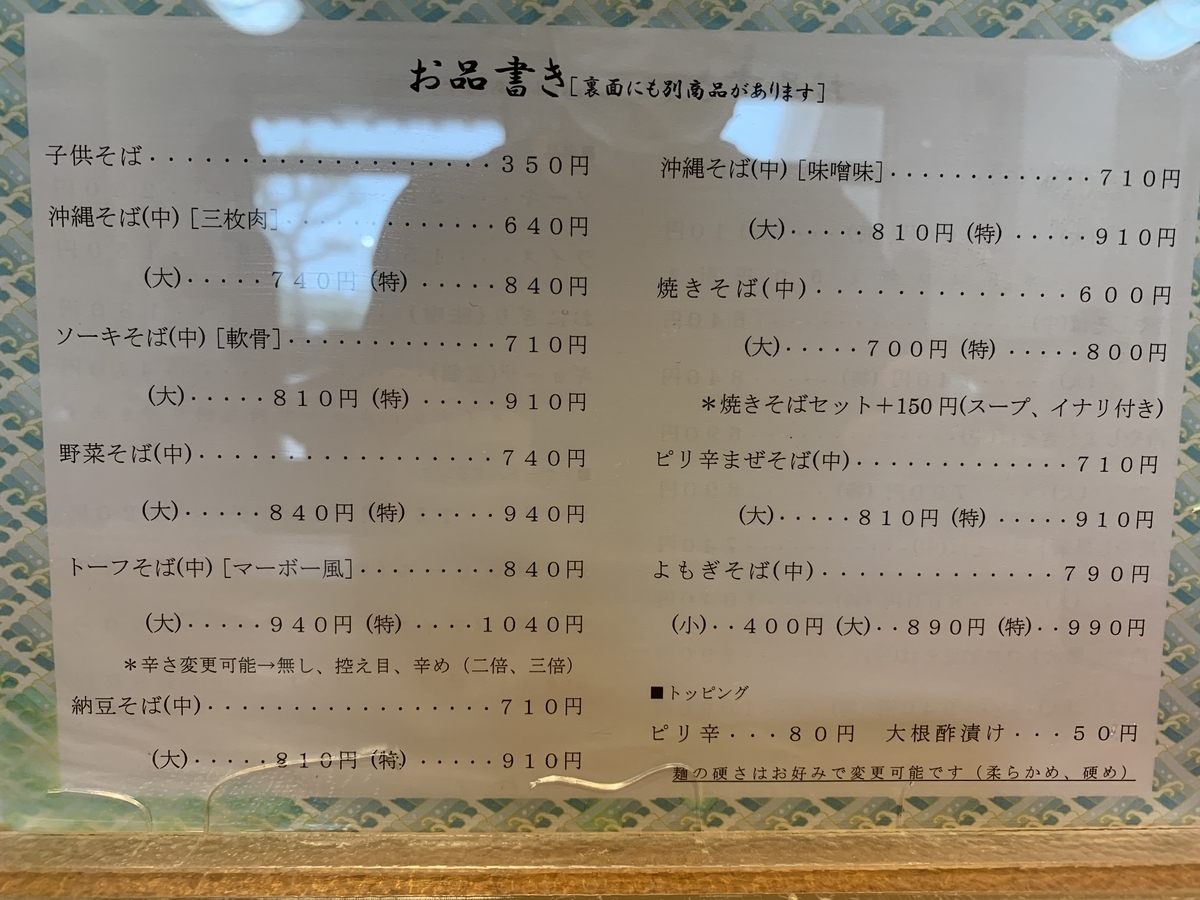 お品書き[裏面にも別商品があります]
子供そば......................350円
沖縄そば(中)[三枚肉]..............640円
(大).....740円 (特) .....840円
ソーキそば(中)[軟骨].............710円
(大).....810円 (特) .....910円
野菜そば(中)...................740円
(大).....840円 (特) .....940円
トーフそば(中)[マーボー風].........840円
(大).....940円 (特) ....1040円
＊辛さ変更可能→無し、控え目、辛め（二倍、三倍）
納豆そば(中)...................710円
(大).....810円 (特) .....910円
沖縄そば(中)[味噌味].............710円
(大).....810円 (特) .....910円
焼きそば(中)..............600円
(大).....700円 (特) .....800円
＊焼きそばセット＋150円(スープ、イナリ付き)
ピリ辛まぜそば(中).............710円
(大).....810円 (特) .....910円
よもぎそば(中).............790円
(小)..400円 (大)..890円 (特)..990円
■トッピング
ピリ辛...80円 大根酢漬け...50円
麺の硬さはお好みで変更可能です（柔らかめ、硬め）